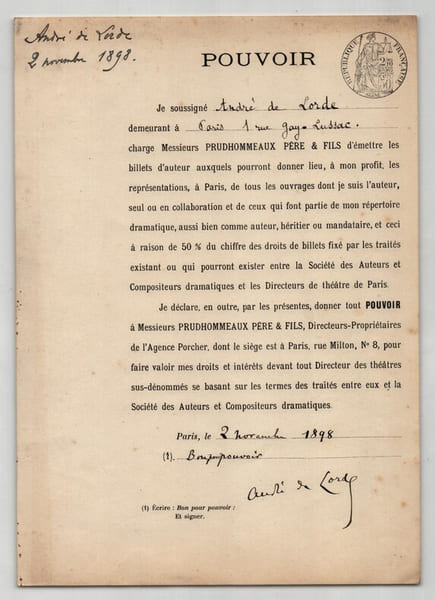 André de Lorde
2 novembre 1898.
POUVOIR
RÉPUBLIQUE FRANÇAISE
Je soussigné André de Lorde
demeurant à Paris 1 rue Gay-Lussac.
charge Messieurs PRUDHOMMEAUX PÈRE & FILS d'émettre les
billets d'auteur auxquels pourront donner lieu, à mon profit, les
représentations, à Paris, de tous les ouvrages dont je suis l'auteur,
seul ou en collaboration et de ceux qui font partie de mon répertoire
dramatique, aussi bien comme auteur, héritier ou mandataire, et ceci
à raison de 50 % du chiffre des droits de billets fixé par les traités
existant ou qui pourront exister entre la Société des Auteurs et
Compositeurs dramatiques et les Directeurs de théâtre de Paris.
Je déclare, en outre, par les présentes, donner tout POUVOIR
à Messieurs PRUDHOMMEAUX PÈRE & FILS, Directeurs-Propriétaires
de l'Agence Porcher, dont le siège est à Paris, rue Milton, No 8, pour
faire valoir mes droits et intérêts devant tout Directeur des théâtres
sus-dénommés se basant sur les termes des traités entre eux et la
Société des Auteurs et Compositeurs dramatiques.
Paris, le 2 novembre 1898
(1). Bon pour pouvoir
André de Lorde
(1) Écrire : Bon pour pouvoir :
Et signer.